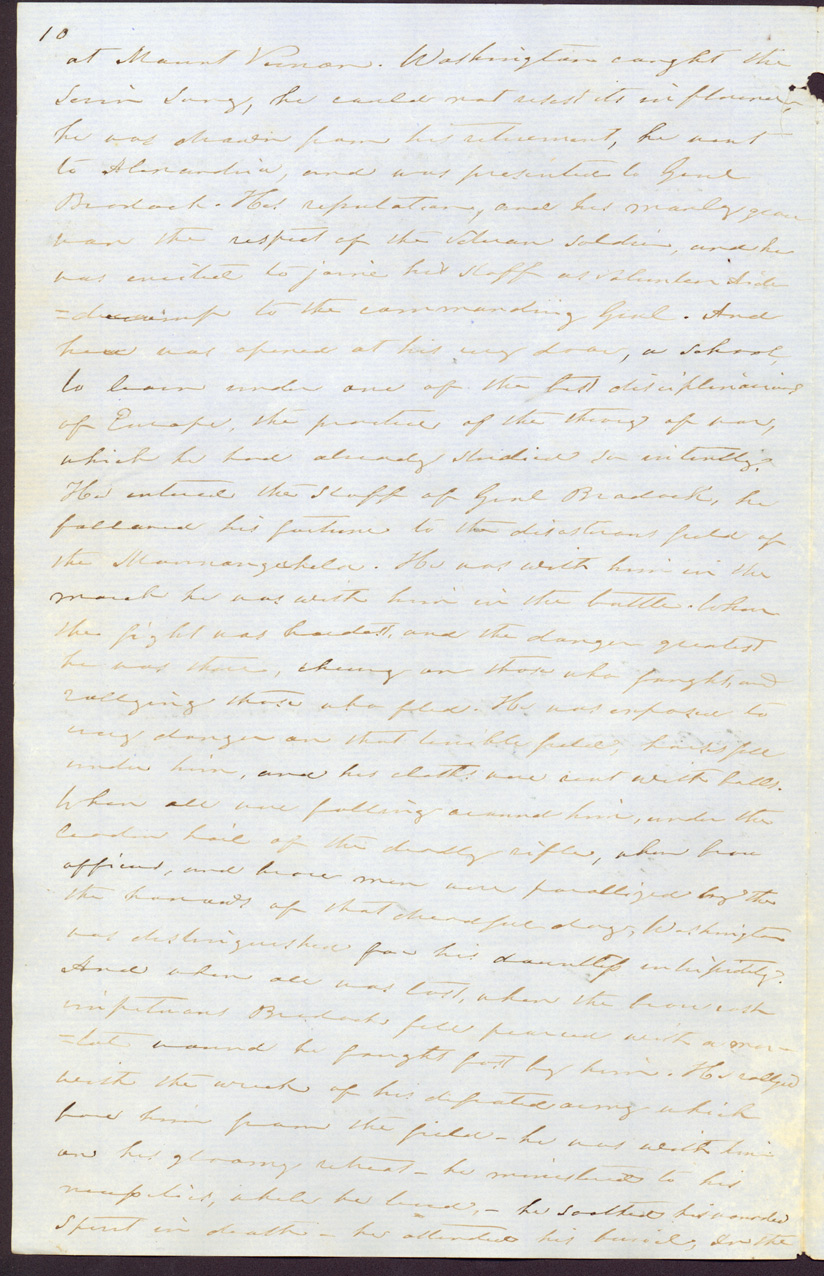 10
at Mount Vernon. Washington caught the
Siren Song, he could not resist its influence,
he was drawn from his retirement, he went
to Alexandria, and was presented to Genl
Bradock. His reputation, and his manly grace
won the respect of the veteran soldier, and he
was invited to joine his staff as volunteer Aide
=decamp to the commanding Genl. And
here was opened at his very door, a school,
to learn under one of the best disciplinarians
of Europe, the practice of the theory of war,
which he had already studied so intently.
He entered the staff of Genl Bradock, he
followed his fortune to the disastrous field of
the Monnangehela. He was with him in the
march he was with him in the battle. When
the fight was hardest, and the danger greatest
he was there, cheering on those who fought, and
rallying those who fled. He was exposed to
every danger on that terrible field, horses fell
under him, and his cloths were rent with balls.
When all were falling around him, under the
leaden hail of the deadly rifle, when brave
officers, and brave men were paralized by the
the horrors of that dreadful day, Washington
was distinguished for his dauntless intripidity.
And when all was lost, when the brave rash
impetuous Bradock fell pearced with a mor=
=tal wound he fought fast by him. He rallyed
with the wreck of his defeated army which
bore him from the field – he was with him
on his gloomy retreat – he ministered to his
necessities, while he lived, – he soothed his wounded
Spirit in death – he attended his burial, In the